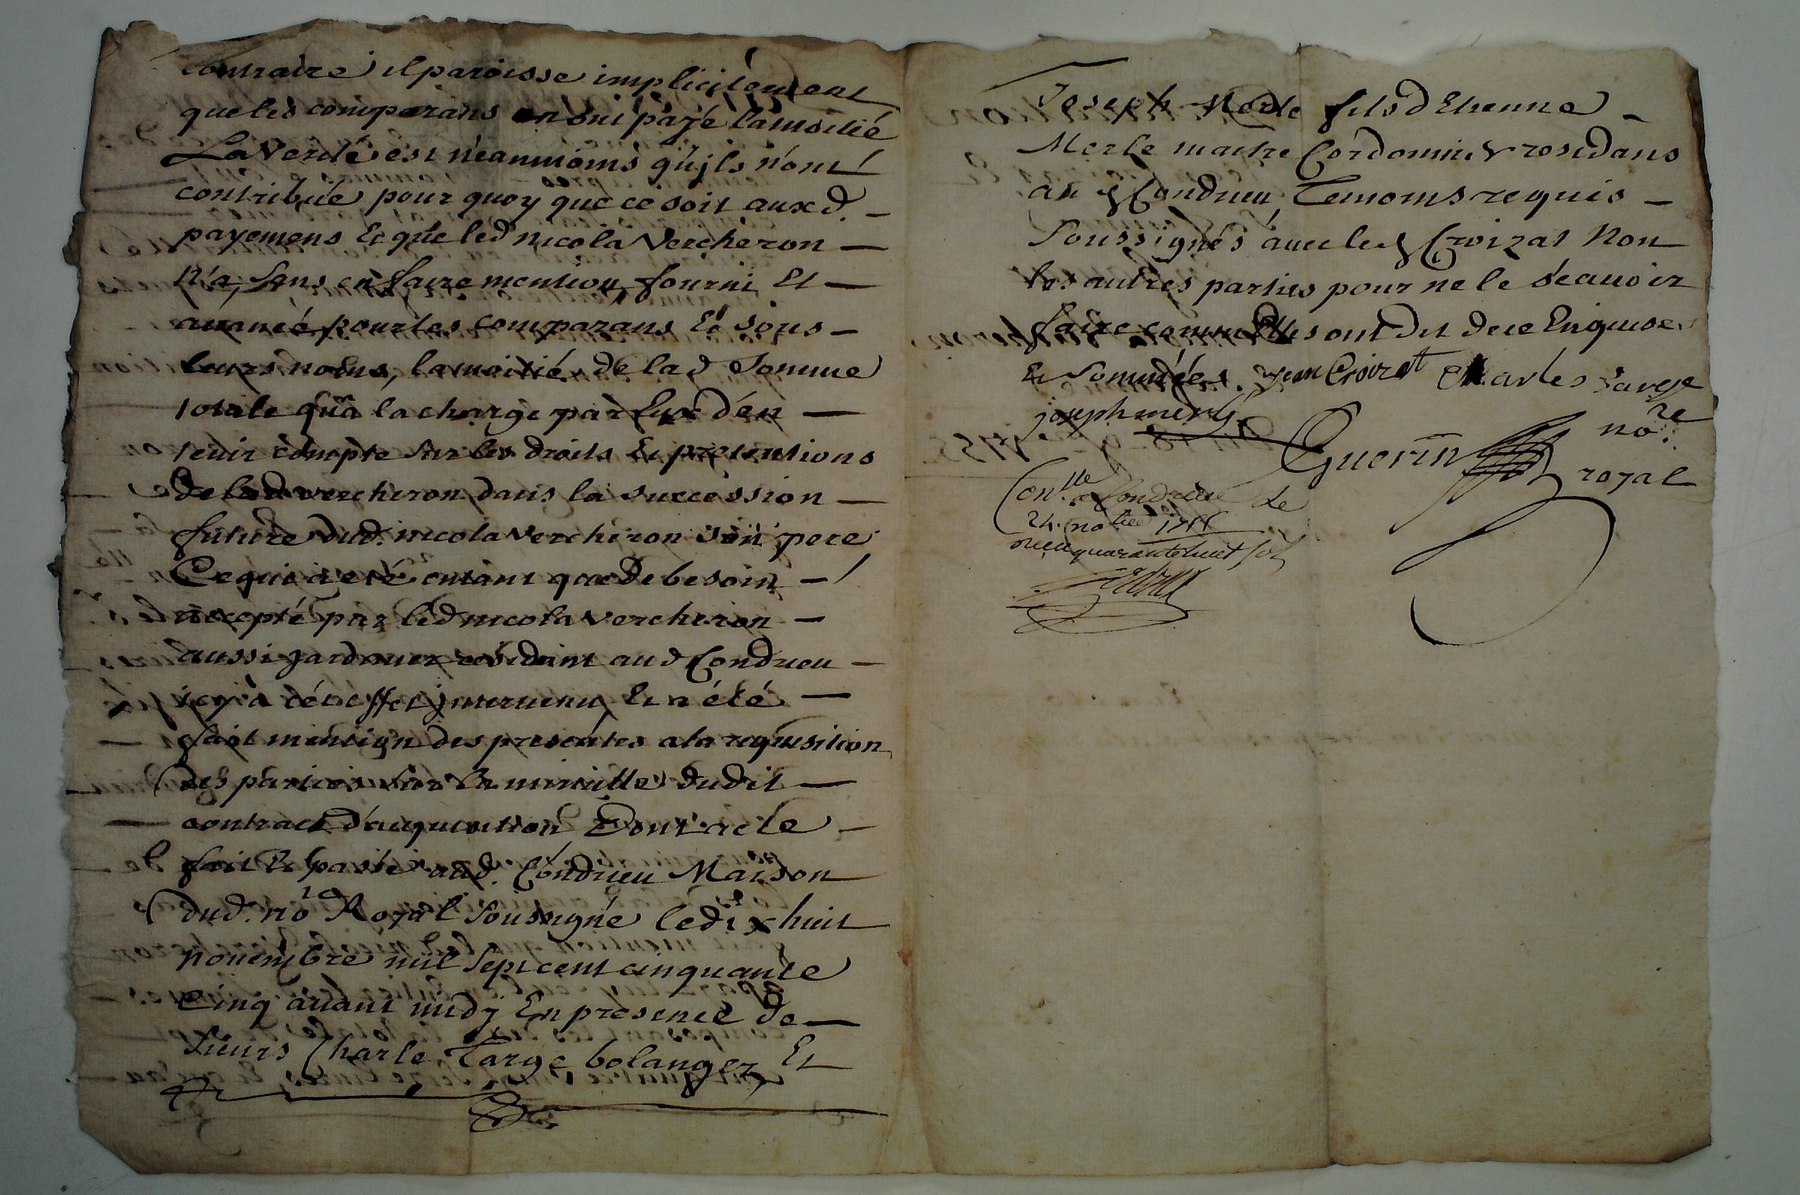 contraire il paroisse implicitement
que les comparans en ont payé la moitié
La Verité est néanmoins qu'ils n'ont
contribüé pour quoy que ce soit aux d.
payemens Et que led nicola Vercheron
n'a, sans en faire mention, fourni Et
avancé pour les comparans Et sous
leurs noms, la moitié de la d Somme
totale qu'a la charge par Eux d'en
tenir compte sur les droits Et pretentions
De led vercheron dans la succession
future dud. nicola vercheron son pere
Ce qui a eté entant que de besoin
accepté par led nicola vercheron
aussi jardinier residant aud Condrieu
icy a cet effet intervenu Et a été
fait mention des presentes a la requisition
des parties sur la minutte dudit
contract d'acquisition Dont acte
fait Et passé aud. Condrieu Maison
dud. no.re Royal Sousigné le dix huit
novembre mil sept cent cinquante
cinq avant midy En presence de
sieurs Charle Targe bolanger Et
Joseph Merle fils d'Etienne
Merle maitre Cordonnier residans
au d Condrieu Temoins requis
Soussignés avec led Croizat Non
les autres parties pour ne le scavoir
faire comme Elles ont Dit de ce Enquises
Et Sommées. jean Croizat Charles Targe
joseph merle
Guerin no.re
royal
Con.lle a Condrieu le
24. no 1755
quarante huit sols